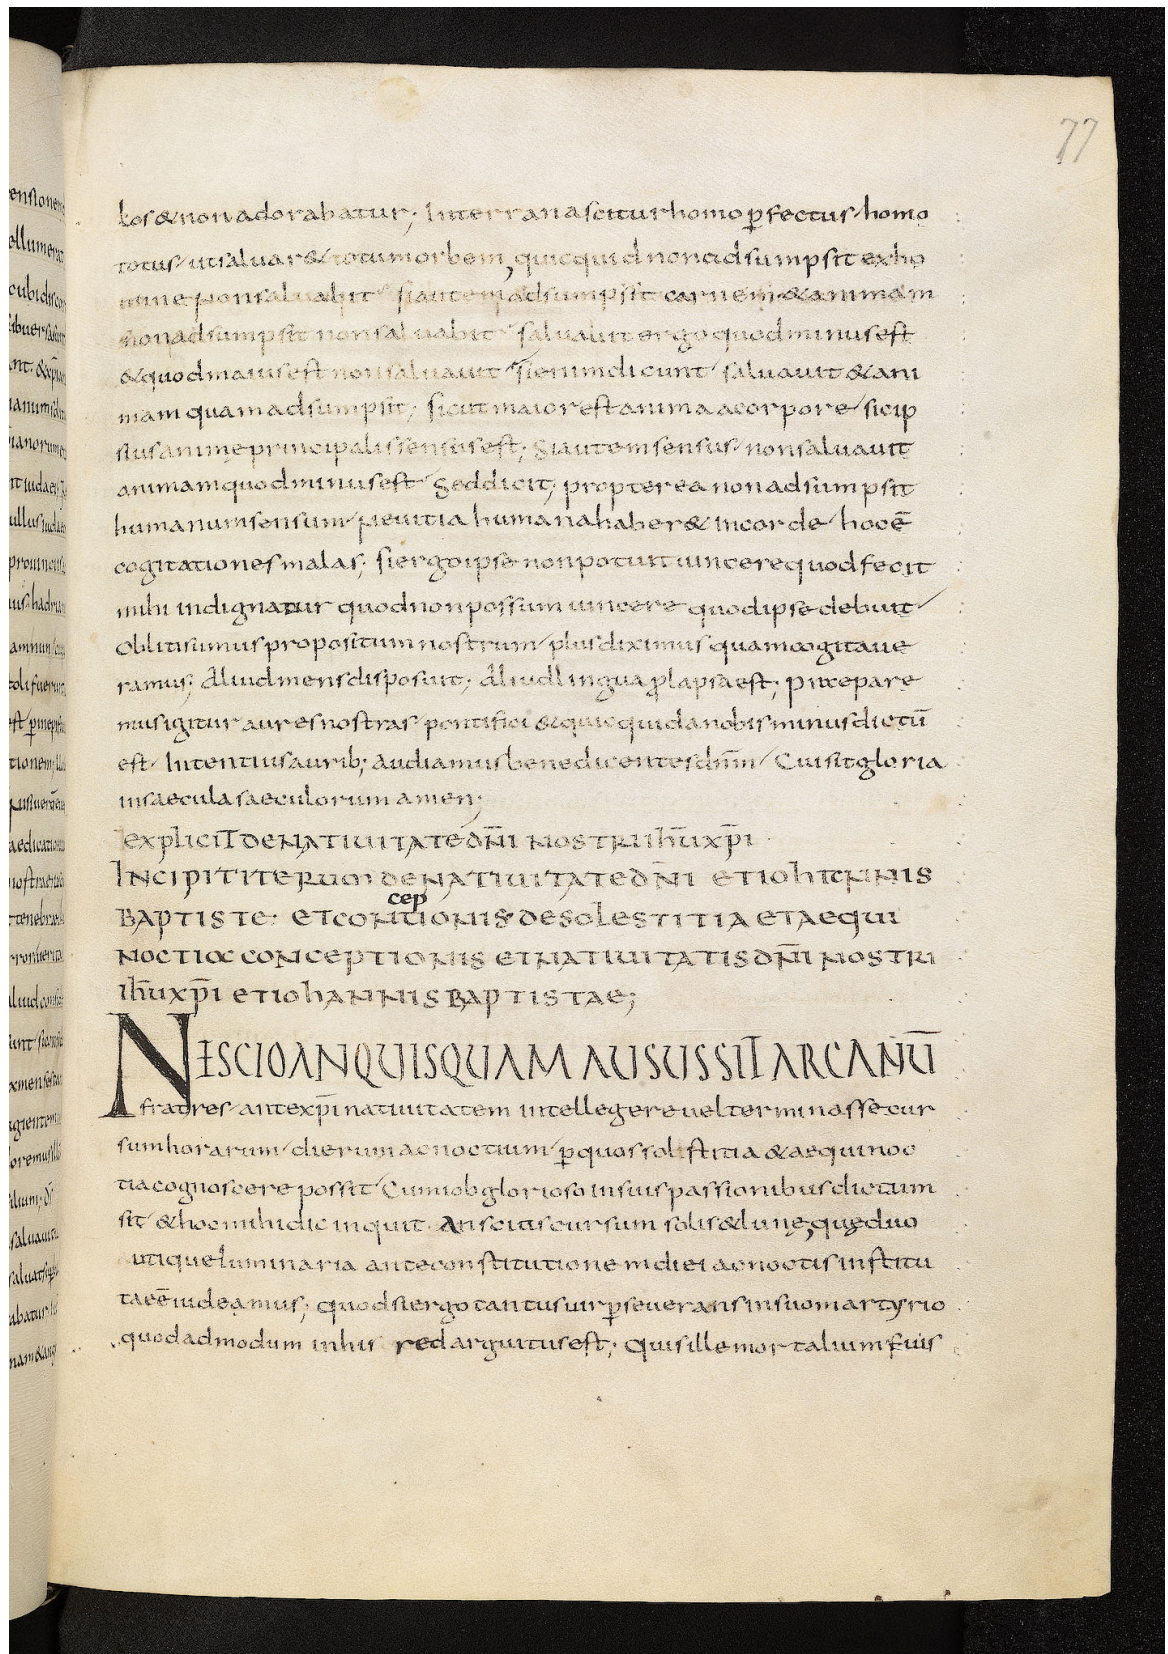 77
los & non adorabatur; In terra nascitur homo p̱fectus homo
totus ut saluar& totum orbem, quicquid non adsumpsit ex ho
mine non saluabit si autem adsumpsit carnem & animam
non adsumpsit non saluabit saluabit ergo quod minus est
& quod maius est non saluauit si enim dicunt saluauit & ani
mam quam adsumpsit; sicut maior est anima a corpore sic ip
sius animę principalis sensus est; Si autem sensus non saluauit
animam quod minus est Sed dicit; propterea non adsumpsit
humanum sensum ne uitia humana haber& in corde hoc ē
cogitationes malas; si ergo ipse non potuit uincere quod fecit
mihi indignatur quod non possum uincere quod ipse debuit
Obliti sumus propositum nostrum plus diximus quam cogitaue
ramus; Aliud mens disposuit; Aliud lingua ꝓlapsa est; Prepare
mus igitur aures nostras pontifici & quicquid a nobis minus dictū
est Intentius aurib; Audiamus benedicentes dn̄m Cui sit gloria
in saecula saeculorum amen;
explicit de natiuitate dn̄i nostri ihū xp̄i
Incipit iterum de natiuitate dn̄i et iohannis
baptiste et con cep tionis de solestitia et aequi
noctia conceptionis et natiuitatis dn̄i nostri
ihū xp̄i et iohannis baptistae;
NESCIO AN QUISQUAM AUSUS SIT ARCANŪ
fratres ante xp̄i natiuitatem intellegere uel terminasse cur
sum horarum dierum ac noctium p̱ quos solstitia & aequinoc
tia cognoscere possit Cum iob glorioso in suis passionibus dictum
sit & hoc mihi dic inquit An scitis cursum solis & lunę, quę duo
utique luminaria ante constitutionem diei ac noctis institu
ta eē uideamus; quod si ergo tantus uir p̱seuerans in suo martyrio
quodadmodum in his redargutus est; Quis ille mortalium fuis